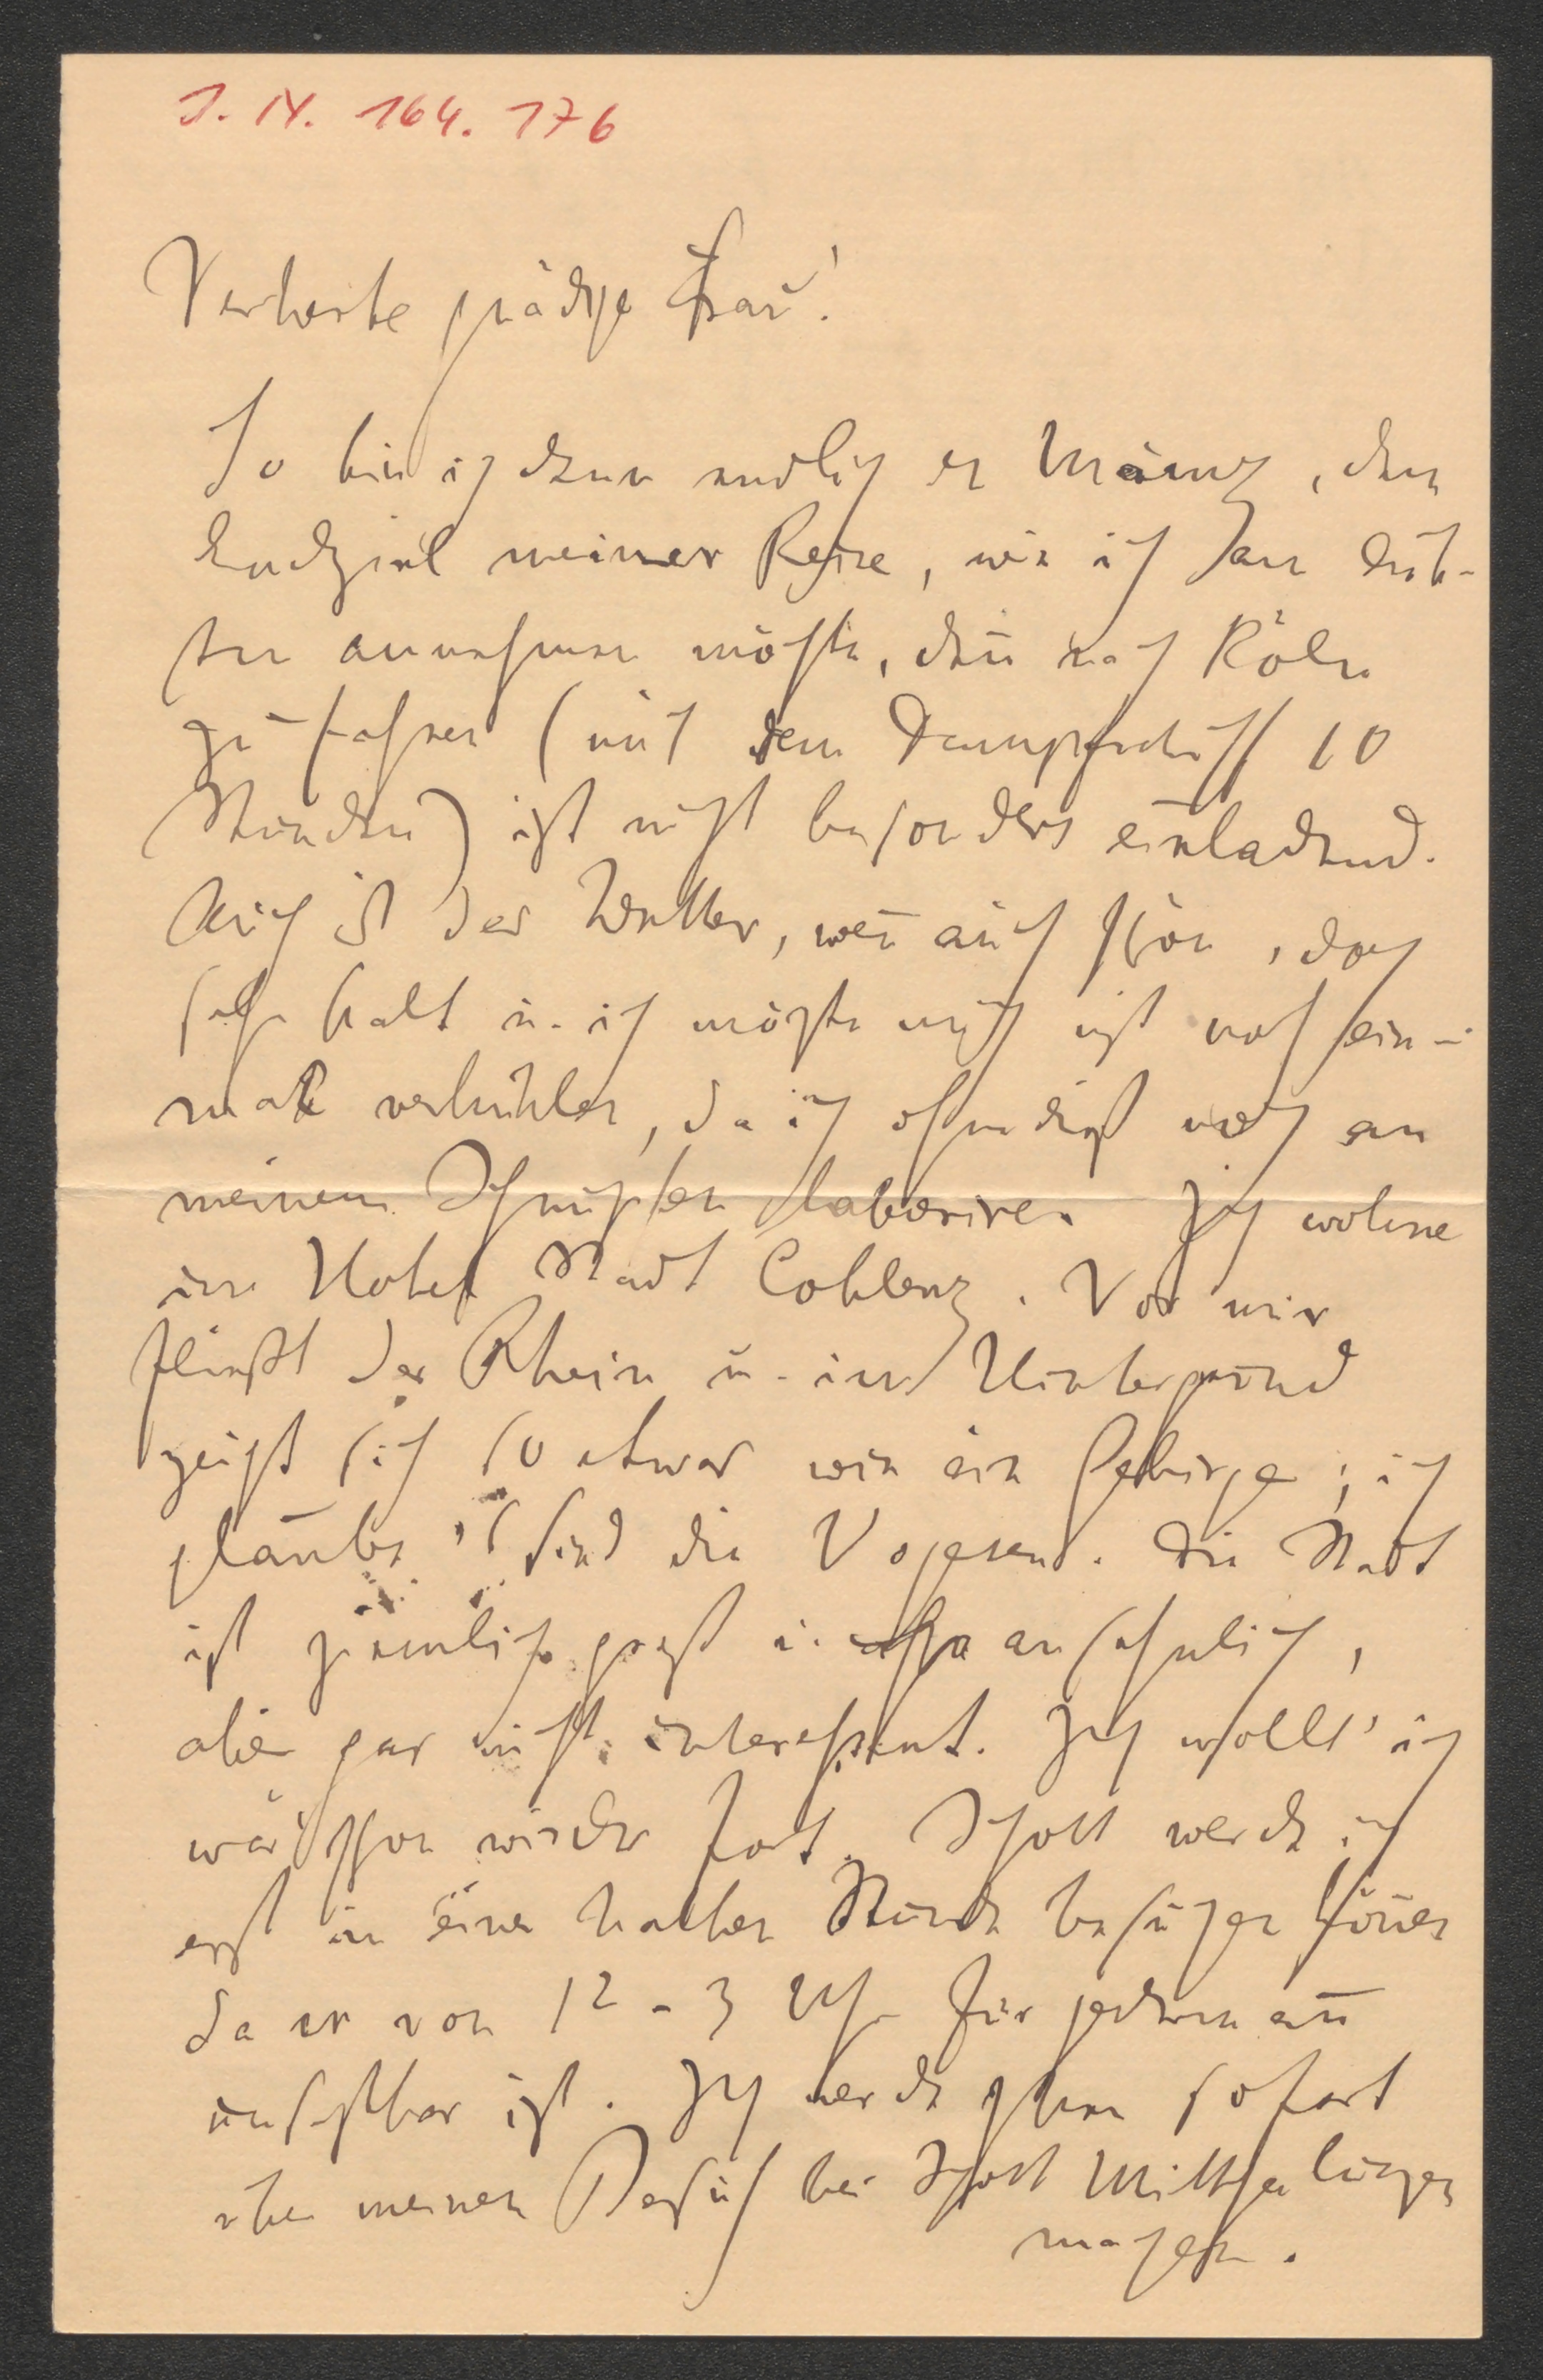 I. N. 164. 176
Verehrte gnädge Frau!
So bin ich denn endlich in Mainz, dem
Endziel meiner Reise, wie ich
annehmen möchte, denn nach Köln
zu fahren (mit dem Dampfschiff 10
Stunden) ist nicht besonders einladend.
Auch ist das Wetter, wen̄ auch schön, doch
sehr kalt u. ich möchte mich nicht noch ein-
mal verkühlen, da ich ohnedieß noch an
meinem Schnupfen laborire. Ich wohne
im Hotel Stadt Coblenz. Vor mir
fließt der Rhein u. im Hintergrund
zeigt sich so etwas wie ein Gebirge; ich
glaube es sind die Vogesen. Die Stadt
ist ziemlich groß u. ansehnlich,
aber gar nicht interessant. Ich wollt' ich
wär' schon wieder fort. Schott werde ich
erst in einer halben Stunde besuchen kön̄en
da er von 12-3 Uhr für jederman̄
unsichtbar ist. Ich werde Ihnen sofort
über meinen Besuch bei Schott Mittheilungen
machen.